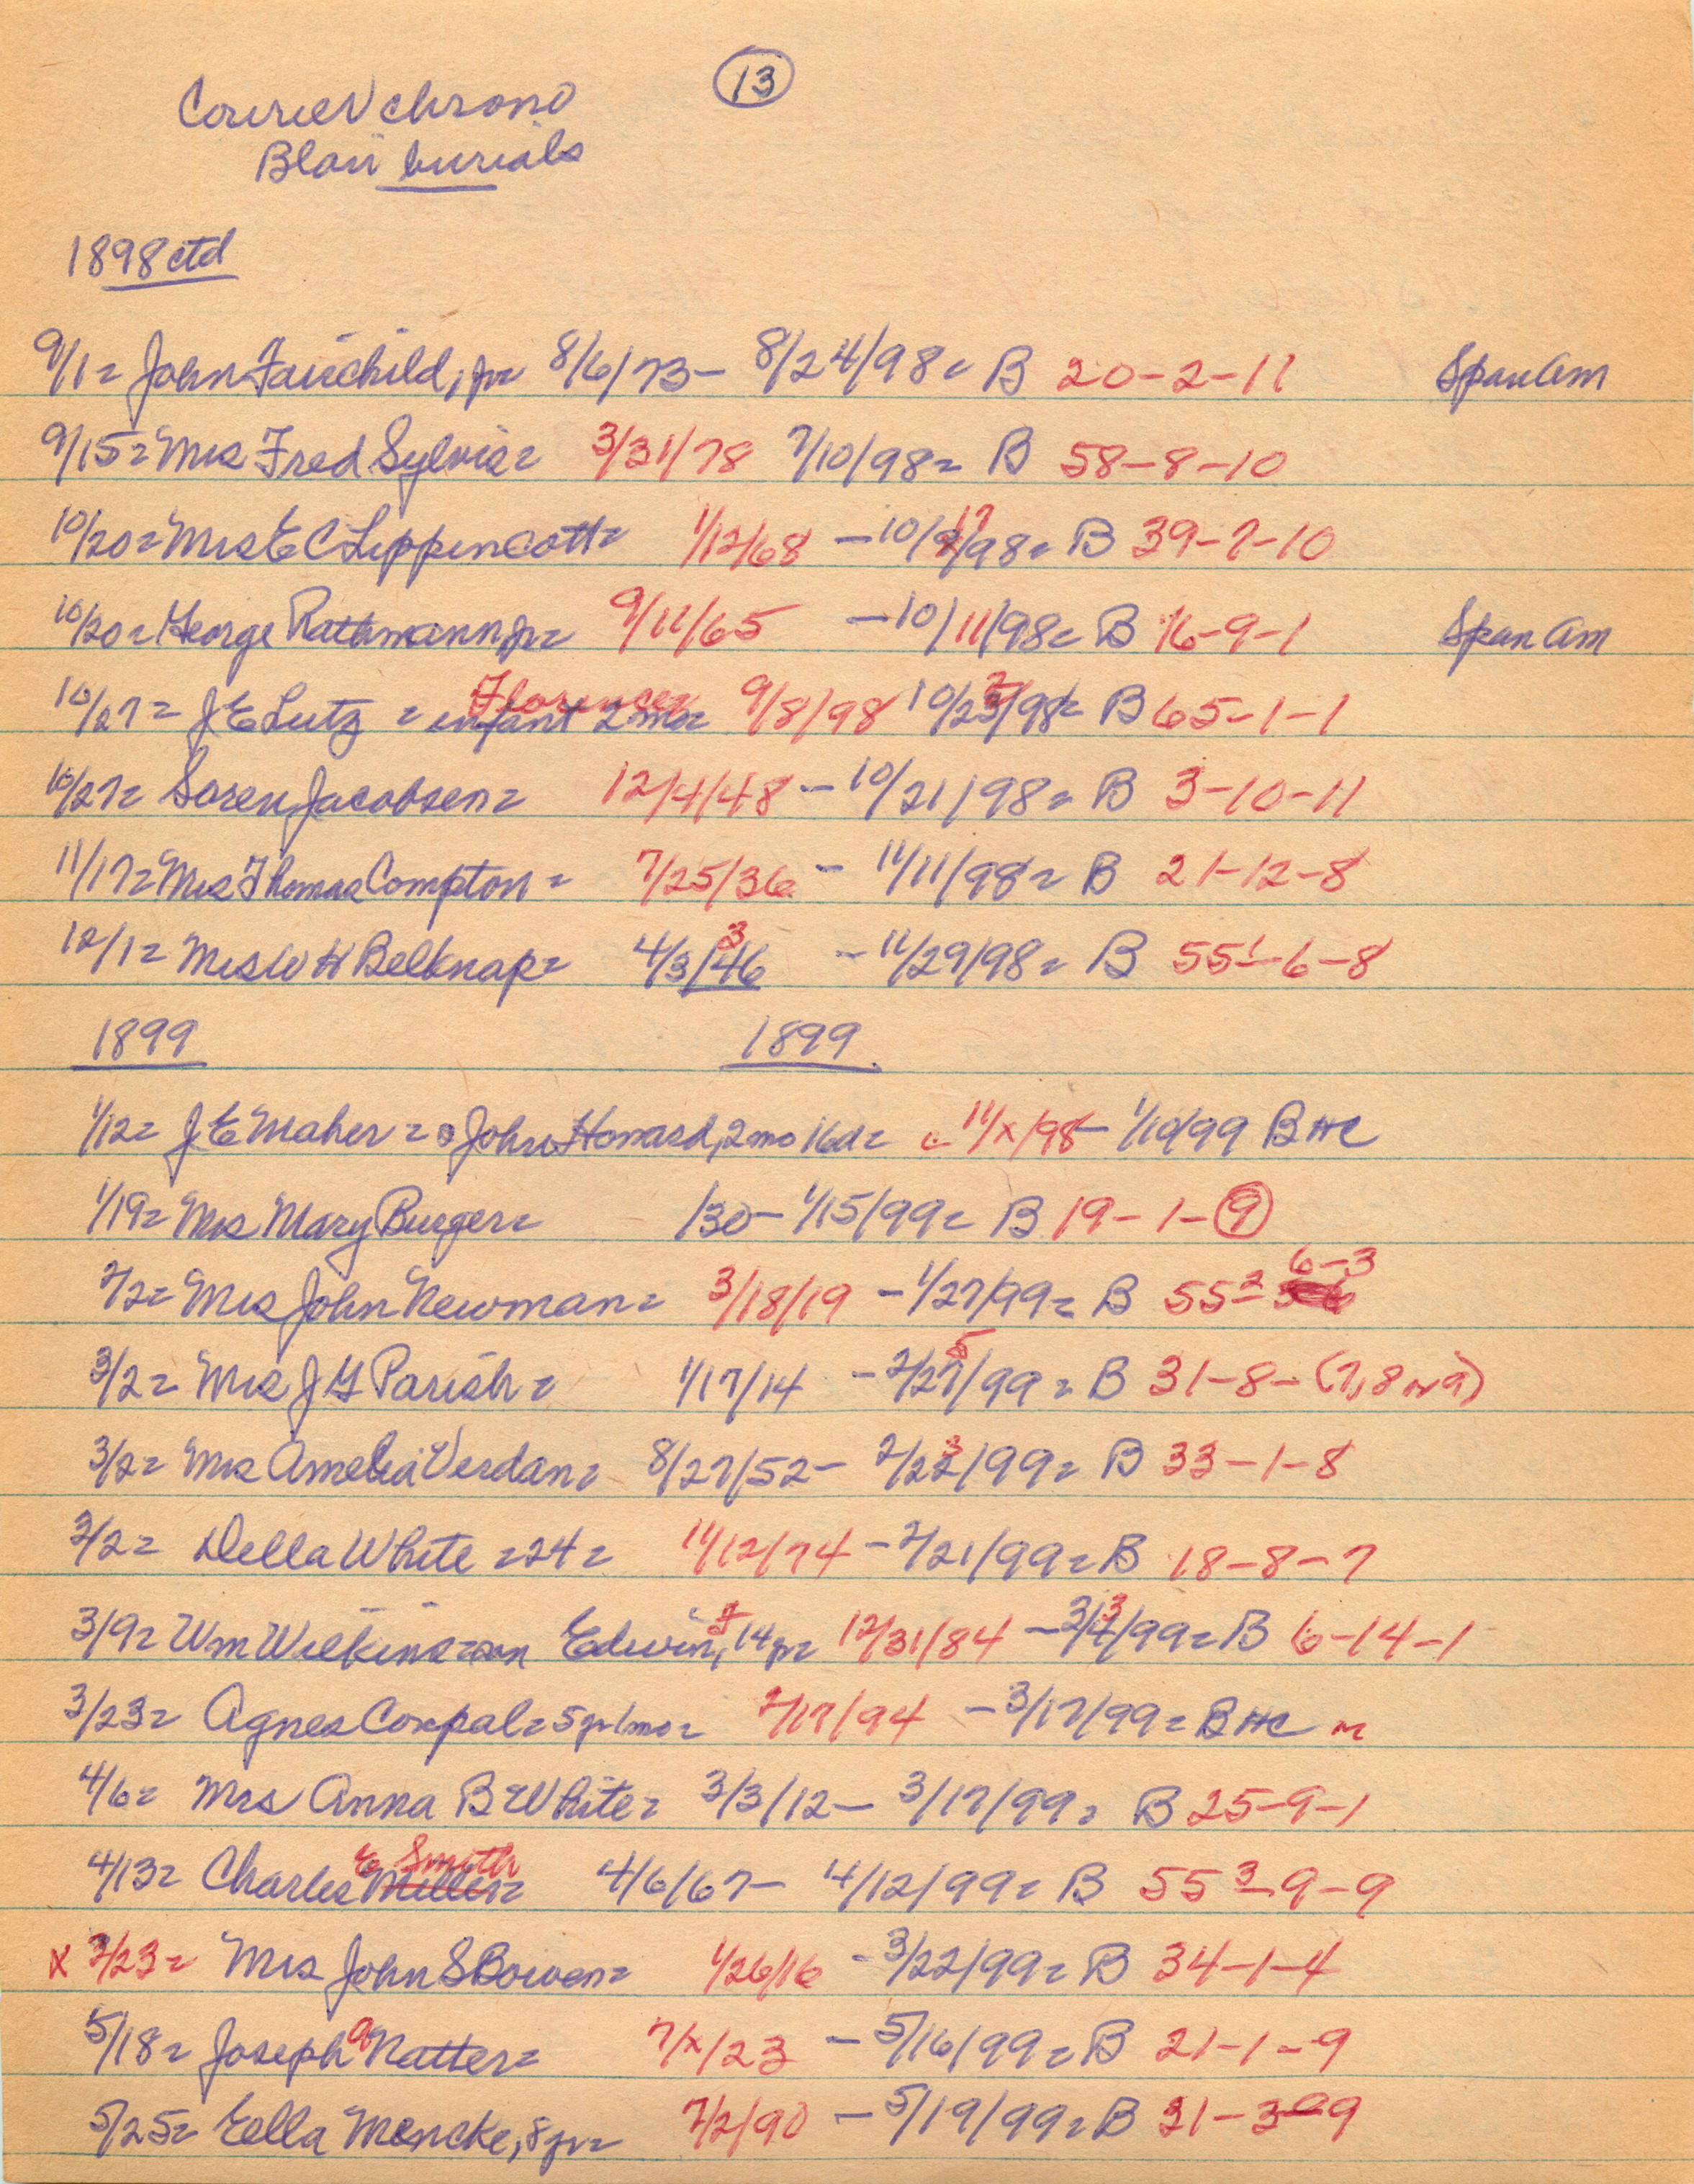 13
Courier chrono
Blair burials
1898 ctd
9/1= John Fairchild, jr 8/6/73- 8/24/98= B 20-2-11 Span Am
9/15= Mrs Fred Sylvis= 3/31/78 7/10/98= B 58-8-10
10/20= Mrs E C Lippencott= 1/12/68 -10/17/98= B 39-7-10
10/20= George Rathmann jr= 9/11/65 -10/11/98= B 16-9-1 Span Am
10/27= J E Lutz = infant Florence 2 mo= 9/8/98 10/23/98= B 65-1-1
10/27= Soren Jacobsen= 12/4/48 - 10/21/98= B 3-10-11
11/17= Mrs Thomas Compton= 7/25/36 - 11/11/98= B 21-12-8
12/1= Mrs W H Belknap= 4/3/46 3 - 11/29/98= B 55 1-6-8
1899 1899
1/12= J E Maher = John Howard, 2 mo 16d= c 11/x/98- 1/10/99 B HC
1/19= Mrs Mary Burger= /30- 1/15/99= B 19-1-9
2/2= Mrs John Newman= 3/18/19 -1/27/99= B 55 2- 6-3
3/2= Mrs J G Parish= 1/17/14 -2/25/99= B 31-8-(7,8 or 9)
3/2= Mrs Amelia Verdan= 8/27/52- 2/23/99= B 33-1-8
3/2= Della White =24= 11/12/74 -2/21/99= B 18-8-7
3/9= Wm Wilkins=son Edwin, 14yr= 12/31/84 -3/3/99= B 6-14-1
3/23= Agnes Compal=5yr 1mo= 2/17/94 -3/17/99= B HC
4/6= Mrs Anna B White= 3/3/12- 3/17/99= B 25-9-1
4/13= Charles E Smith Miller= 4/6/67- 4/12/99= B 55 3-9-9
x 3/23= Mrs John S Bowen= 1/26/16 -3/22/99= B 34-1-4
5/18= Joseph A Natter= 7/x/23 -5/16/99= B 21-1-9
5/25= Eella Mencke, 8yr= 7/2/90 -5/19/99= B 31-3-9